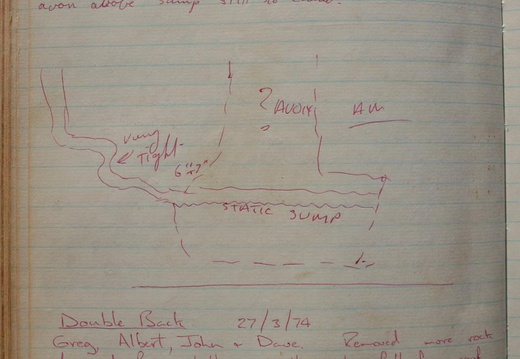 avon above sump still to climb.
? AVON
A.M
very
tight
6"
STATIC SUMP
Double Back 27/3/74
Greg, Albert, John + Dave. Removed more rock